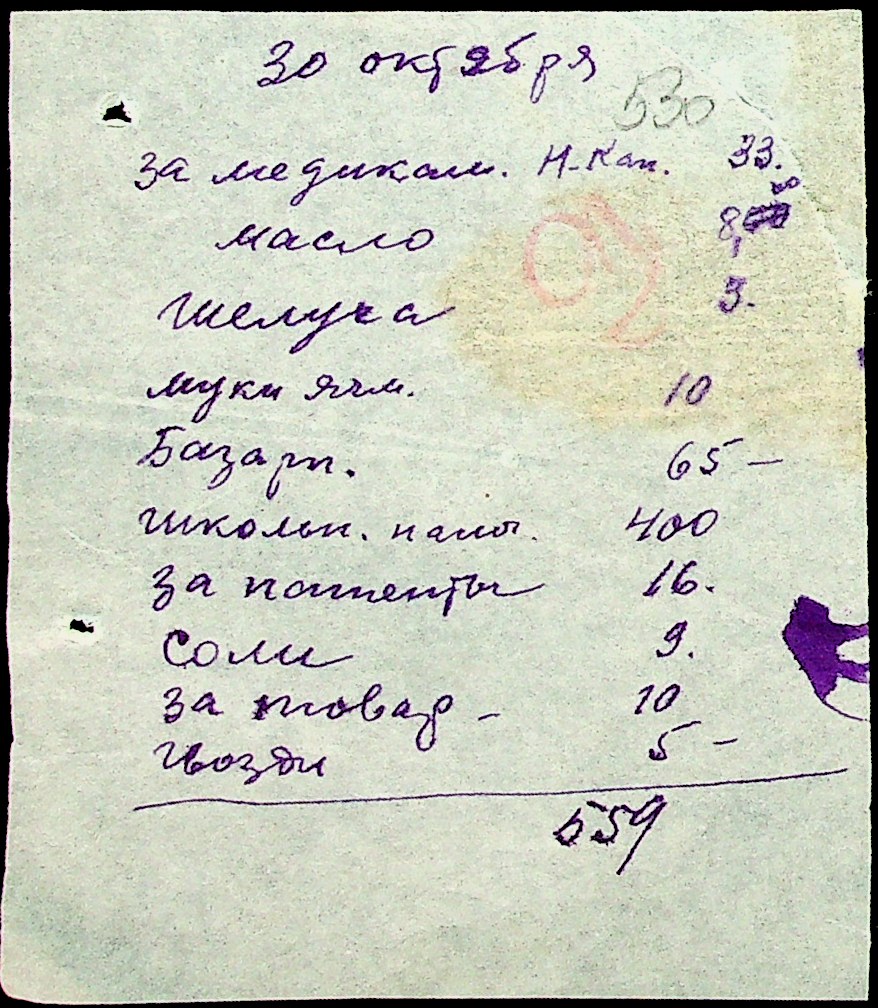 30 октября
530
за медикам. Н-Кап. 33.
масло 8,
Шелуха 3.
муки ячм. 10
Базарн. 65 -
школьн. 400
за патенты 16.
соли 9.
за товар - 10
гвозди 5 -
559